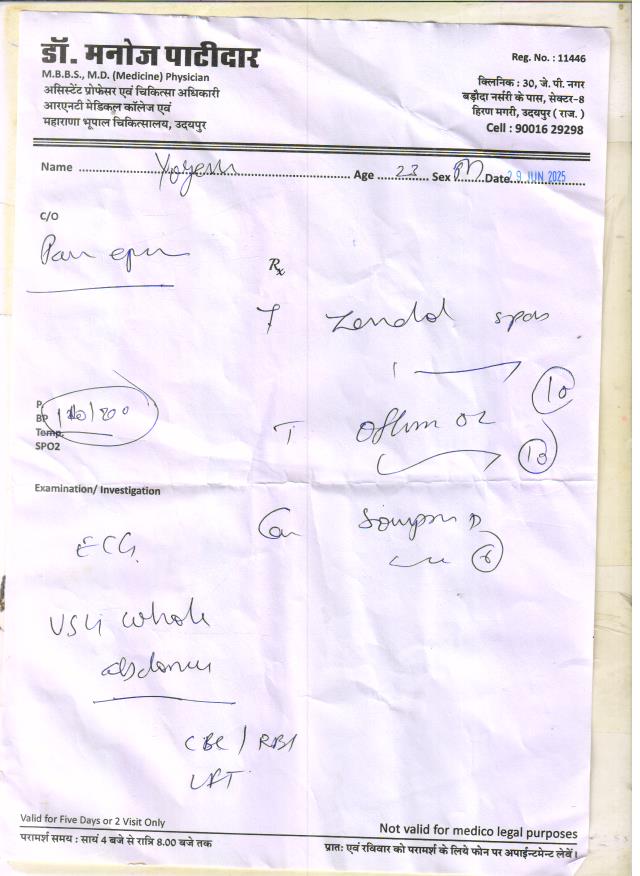 डॉ. मनोज पाटीदार
M.B.B.S., M.D. (Medicine) Physician
असिस्टेंट प्रोफेसर एवं चिकित्सा अधिकारी
आरएनटी मेडिकल कॉलेज एवं
महाराणा भूपाल चिकित्सालय, उदयपुर
Reg. No. : 11446
क्लिनिक : 30, जे. पी. नगर
बड़ौदा नर्सरी के पास, सेक्टर-8
हिरण मगरी, उदयपुर ( राज. )
Cell : 90016 29298
Name Age 23 Sex M Date 29 JUN 2025
C/O
Pain
Rx
T spas
1
10
P
BP 80
Temp.
SPO2
T oz
10
Examination/ Investigation
D
ECG
USG whole
abdomen
CBC / RBS
LFT
Valid for Five Days or 2 Visit Only
Not valid for medico legal purposes
परामर्श समय : सायं 4 बजे से रात्रि 8.00 बजे तक
प्रातः एवं रविवार को परामर्श के लिये फोन पर अपाईन्टमेन्ट लेवें।